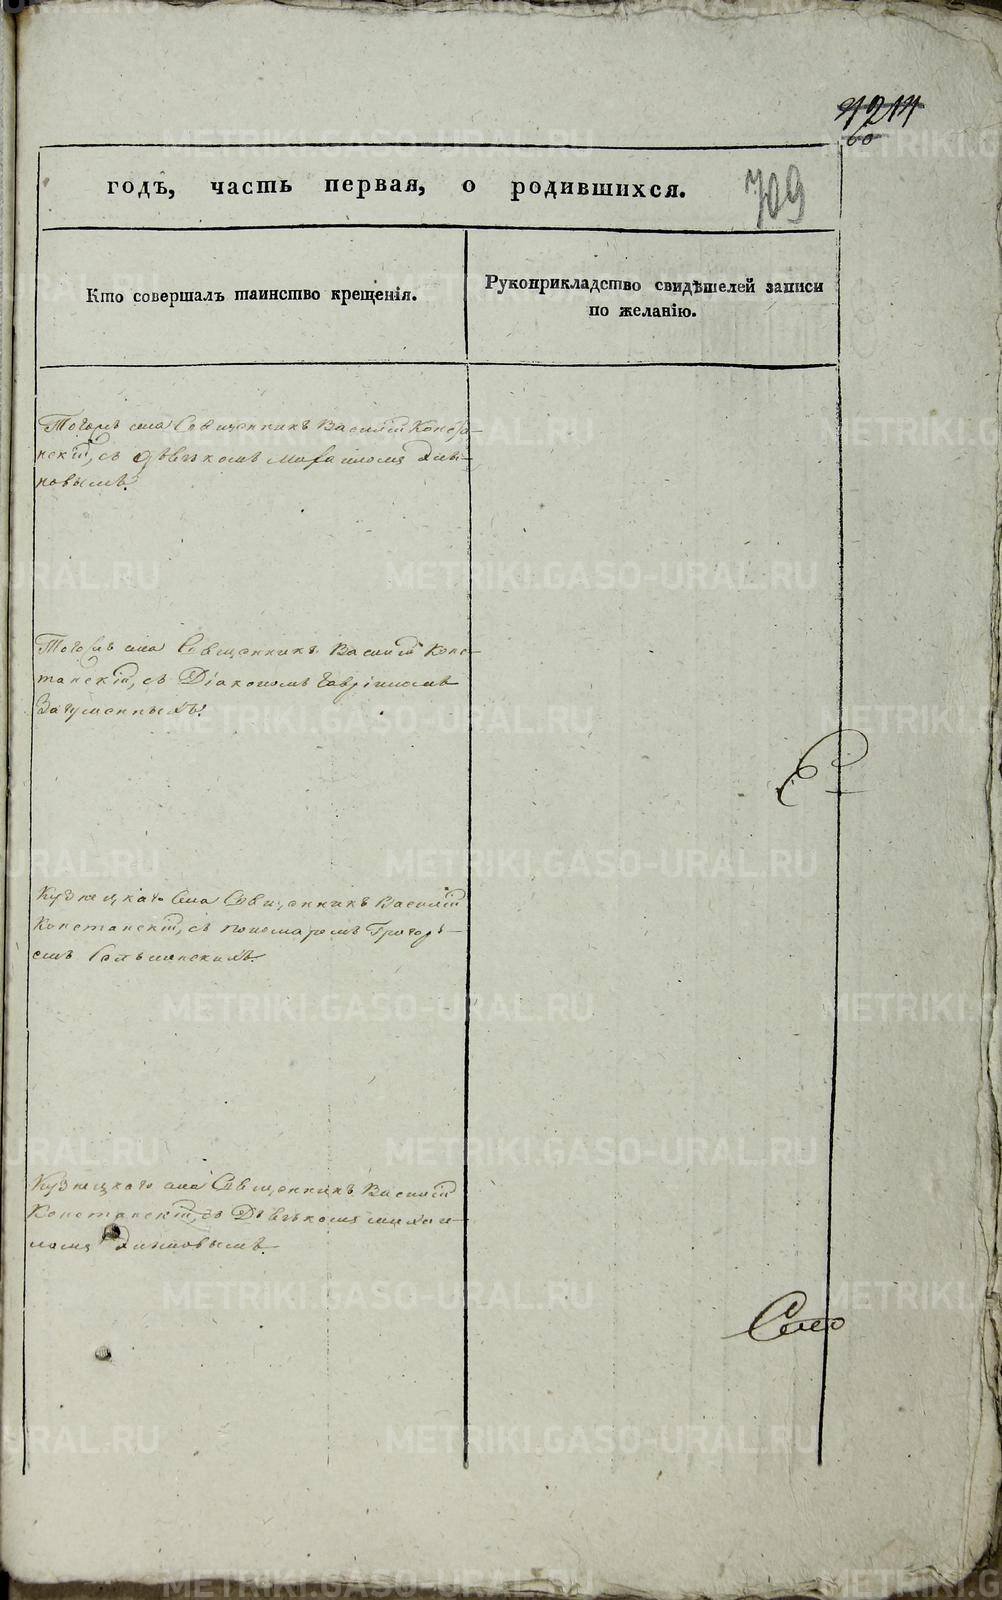 1214
60
годъ, часть первая, о родившихся.
709
Кто совершалъ таинство крещенія.
Рукоприкладство свидѣтелей записи
по желанію.
Тогожъ села Священникъ Василій Конста-
нскій, съ Дьячкомъ Михаиломъ
новымъ.
Тогожъ села Священникъ Василій Конс-
танскій, съ Діакономъ Гавріиломъ
Загуменныхъ.
Кузнецкаго села Священникъ Василій
Констанскій, съ пономаремъ Григорь-
емъ
Кузнецкаго села Священникъ Василій
Констанскій, съ Дьячкомъ Михаи-
ломъ
Село
METRIKI.GASO-URAL.RU